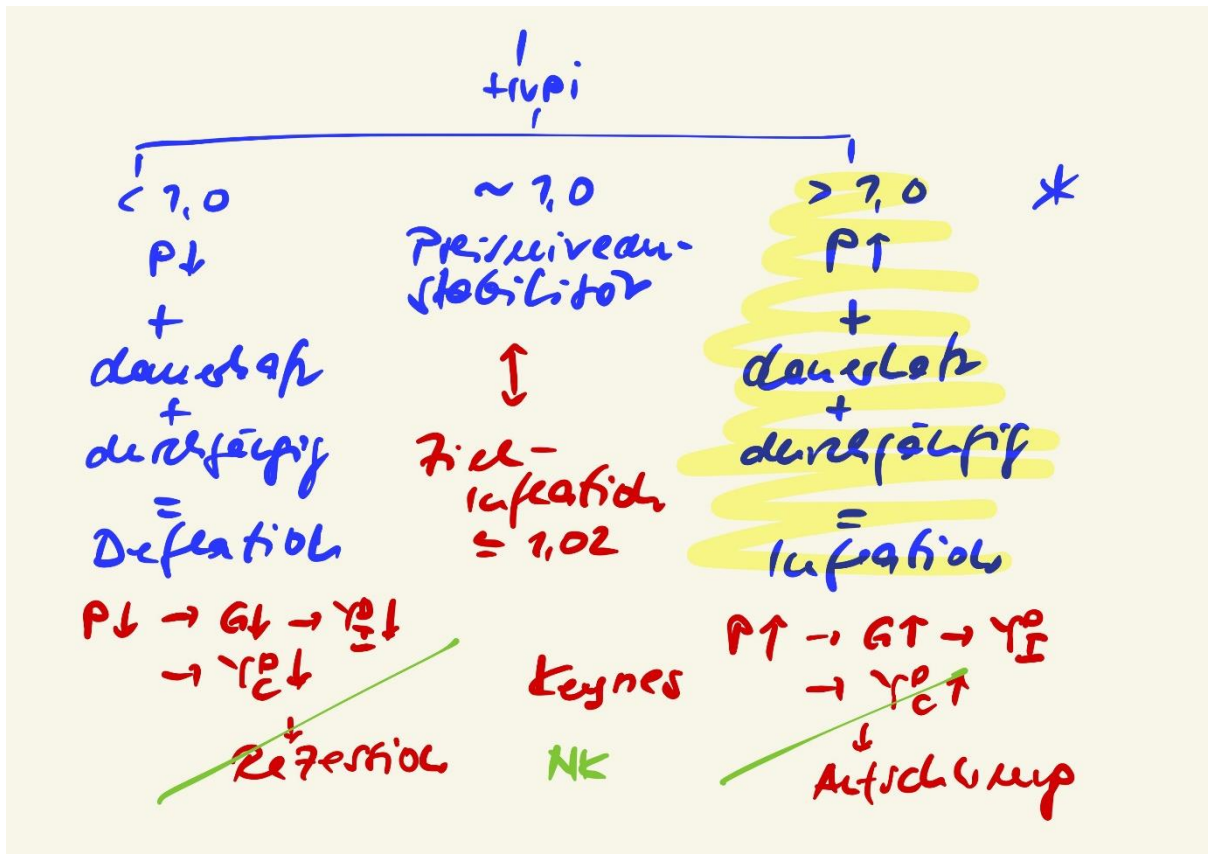 trvpi
< 1,0
P↓
+
dauerhaft
+
durchgängig
=
Deflation
P↓ → G↓ → Y^D_I↓
→ Y^D_C↓
↓
Rezession
~ 1,0
Preisniveau-
stabilität
↕
Ziel-
inflation
≙ 1,02
Keynes
NK
> 1,0
P↑
+
dauerhaft
+
durchgängig
=
Inflation
P↑ → G↑ → Y^D_I
→ Y^D_C↑
↓
Aufschwung
*